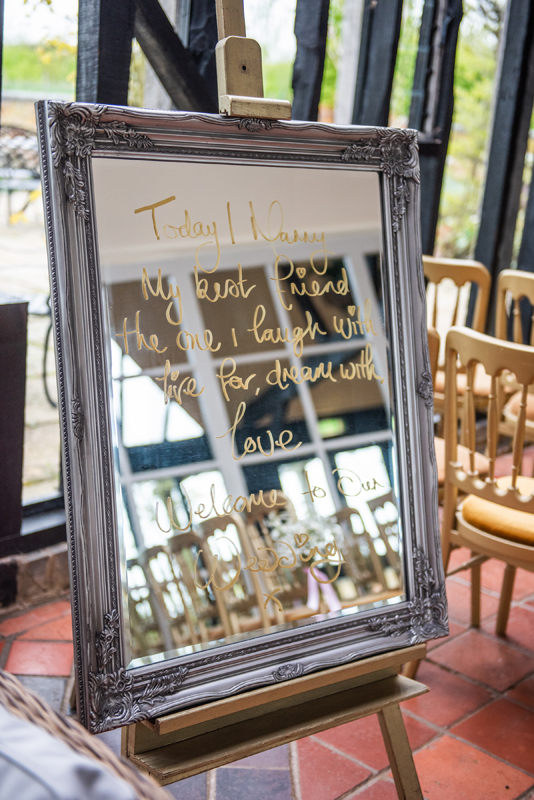 Today I Marry
My best friend
the one I laugh with
live for, dream with,
love
Welcome to Our
Wedding
x